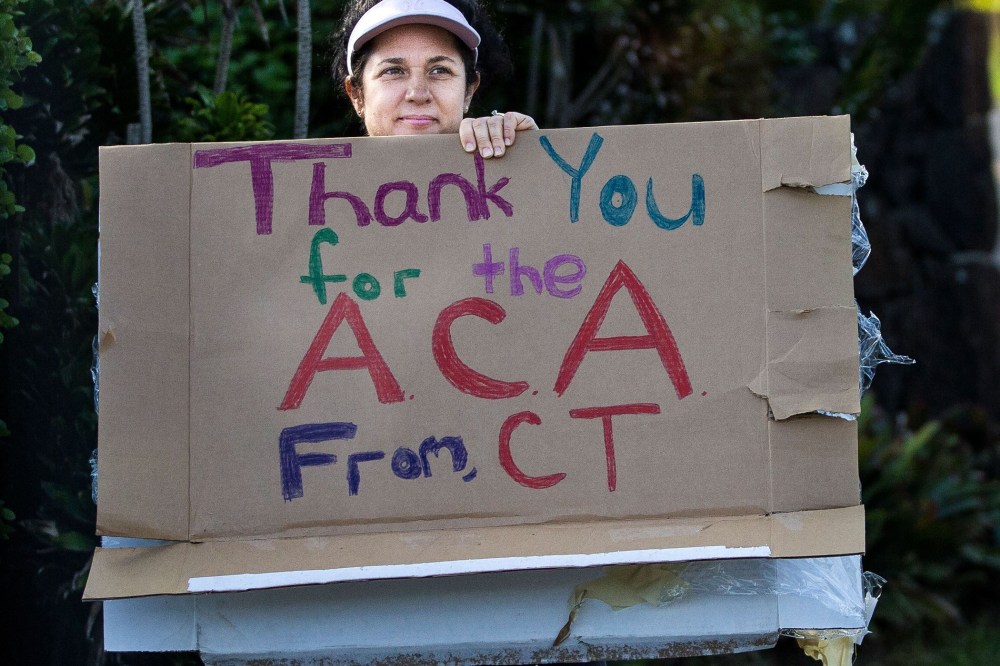 Thank You
for the
A.C.A.
From, CT